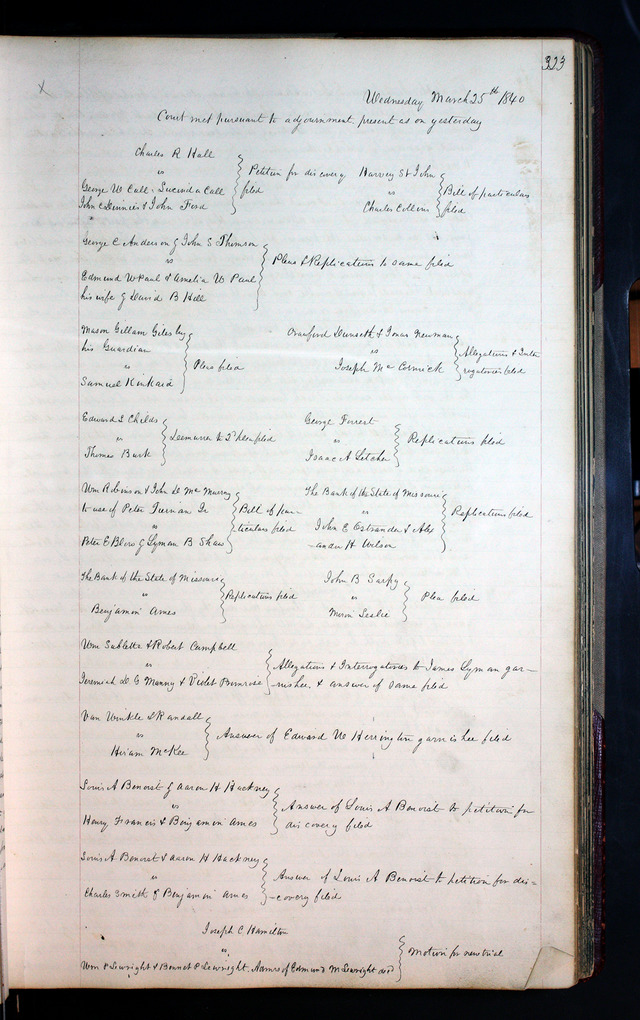 323
Wednesday March 25th 1840
Court met pursuant to adjournment. present as on yesterday
Charles R Hall
vs
George W Call, Lucinda Call
John &
& John Ford
Petition for discovery
filed
Harvey St John
vs
Charles Collins
Bill of particulars
filed
George C Anderson & John S Thomson
vs
Edmund W Paul & Amelia W Paul
his wife & David B Hill
Pleas & Replications to same filed
Mason Gillam Giles by
his Guardian
vs
Samuel Kinkaid
Pleas filed
Crawford Dunseth & Jonas Newman
vs
Joseph Mc Cormick
Allegations & Inter
rogatories filed
Edward S Childs
vs
Thomas Burk
Demurrer to 2d plea filed
George Forrest
vs
Isaac A Letcher
Replications filed
Wm Robinson & John D Mc Murray
to use of Peter Jr
vs
Peter E Blow & Lyman B Shaw
Bill of par
ticulars filed
The Bank of the State of Missouri
vs
John E Ostrander & Alex
ander H Wilson
Replications filed
The Bank of the State of Missouri
vs
Benjamin Ames
Replications filed
John B Sarpy
vs
Miron Leslie
Plea filed
Wm Sublette & Robert Campbell
vs
Jeremiah D. G Manny & Violet
Allegations & Interrogatories to James Lyman gar-
nishee. & answer of same filed
Van Winkle & Randall
vs
Hiram McKee
Answer of Edward W Herrington garnishee filed
Louis A Benoist & Aaron H Hackney
vs
Henry Francis & Benjamin Ames
Answer of Louis A Benoist to petition for
discovery filed
Louis A Benoist & Aaron H Hackney
vs
Charles Smith & Benjamin Ames
Answer of Louis A Benoist to petition for dis=
-covery filed
Joseph C. Hamilton
vs
Wm P Sewright & Bennet P Sewright. Admrs of Edmund M Sewright decd
Motion for new trial